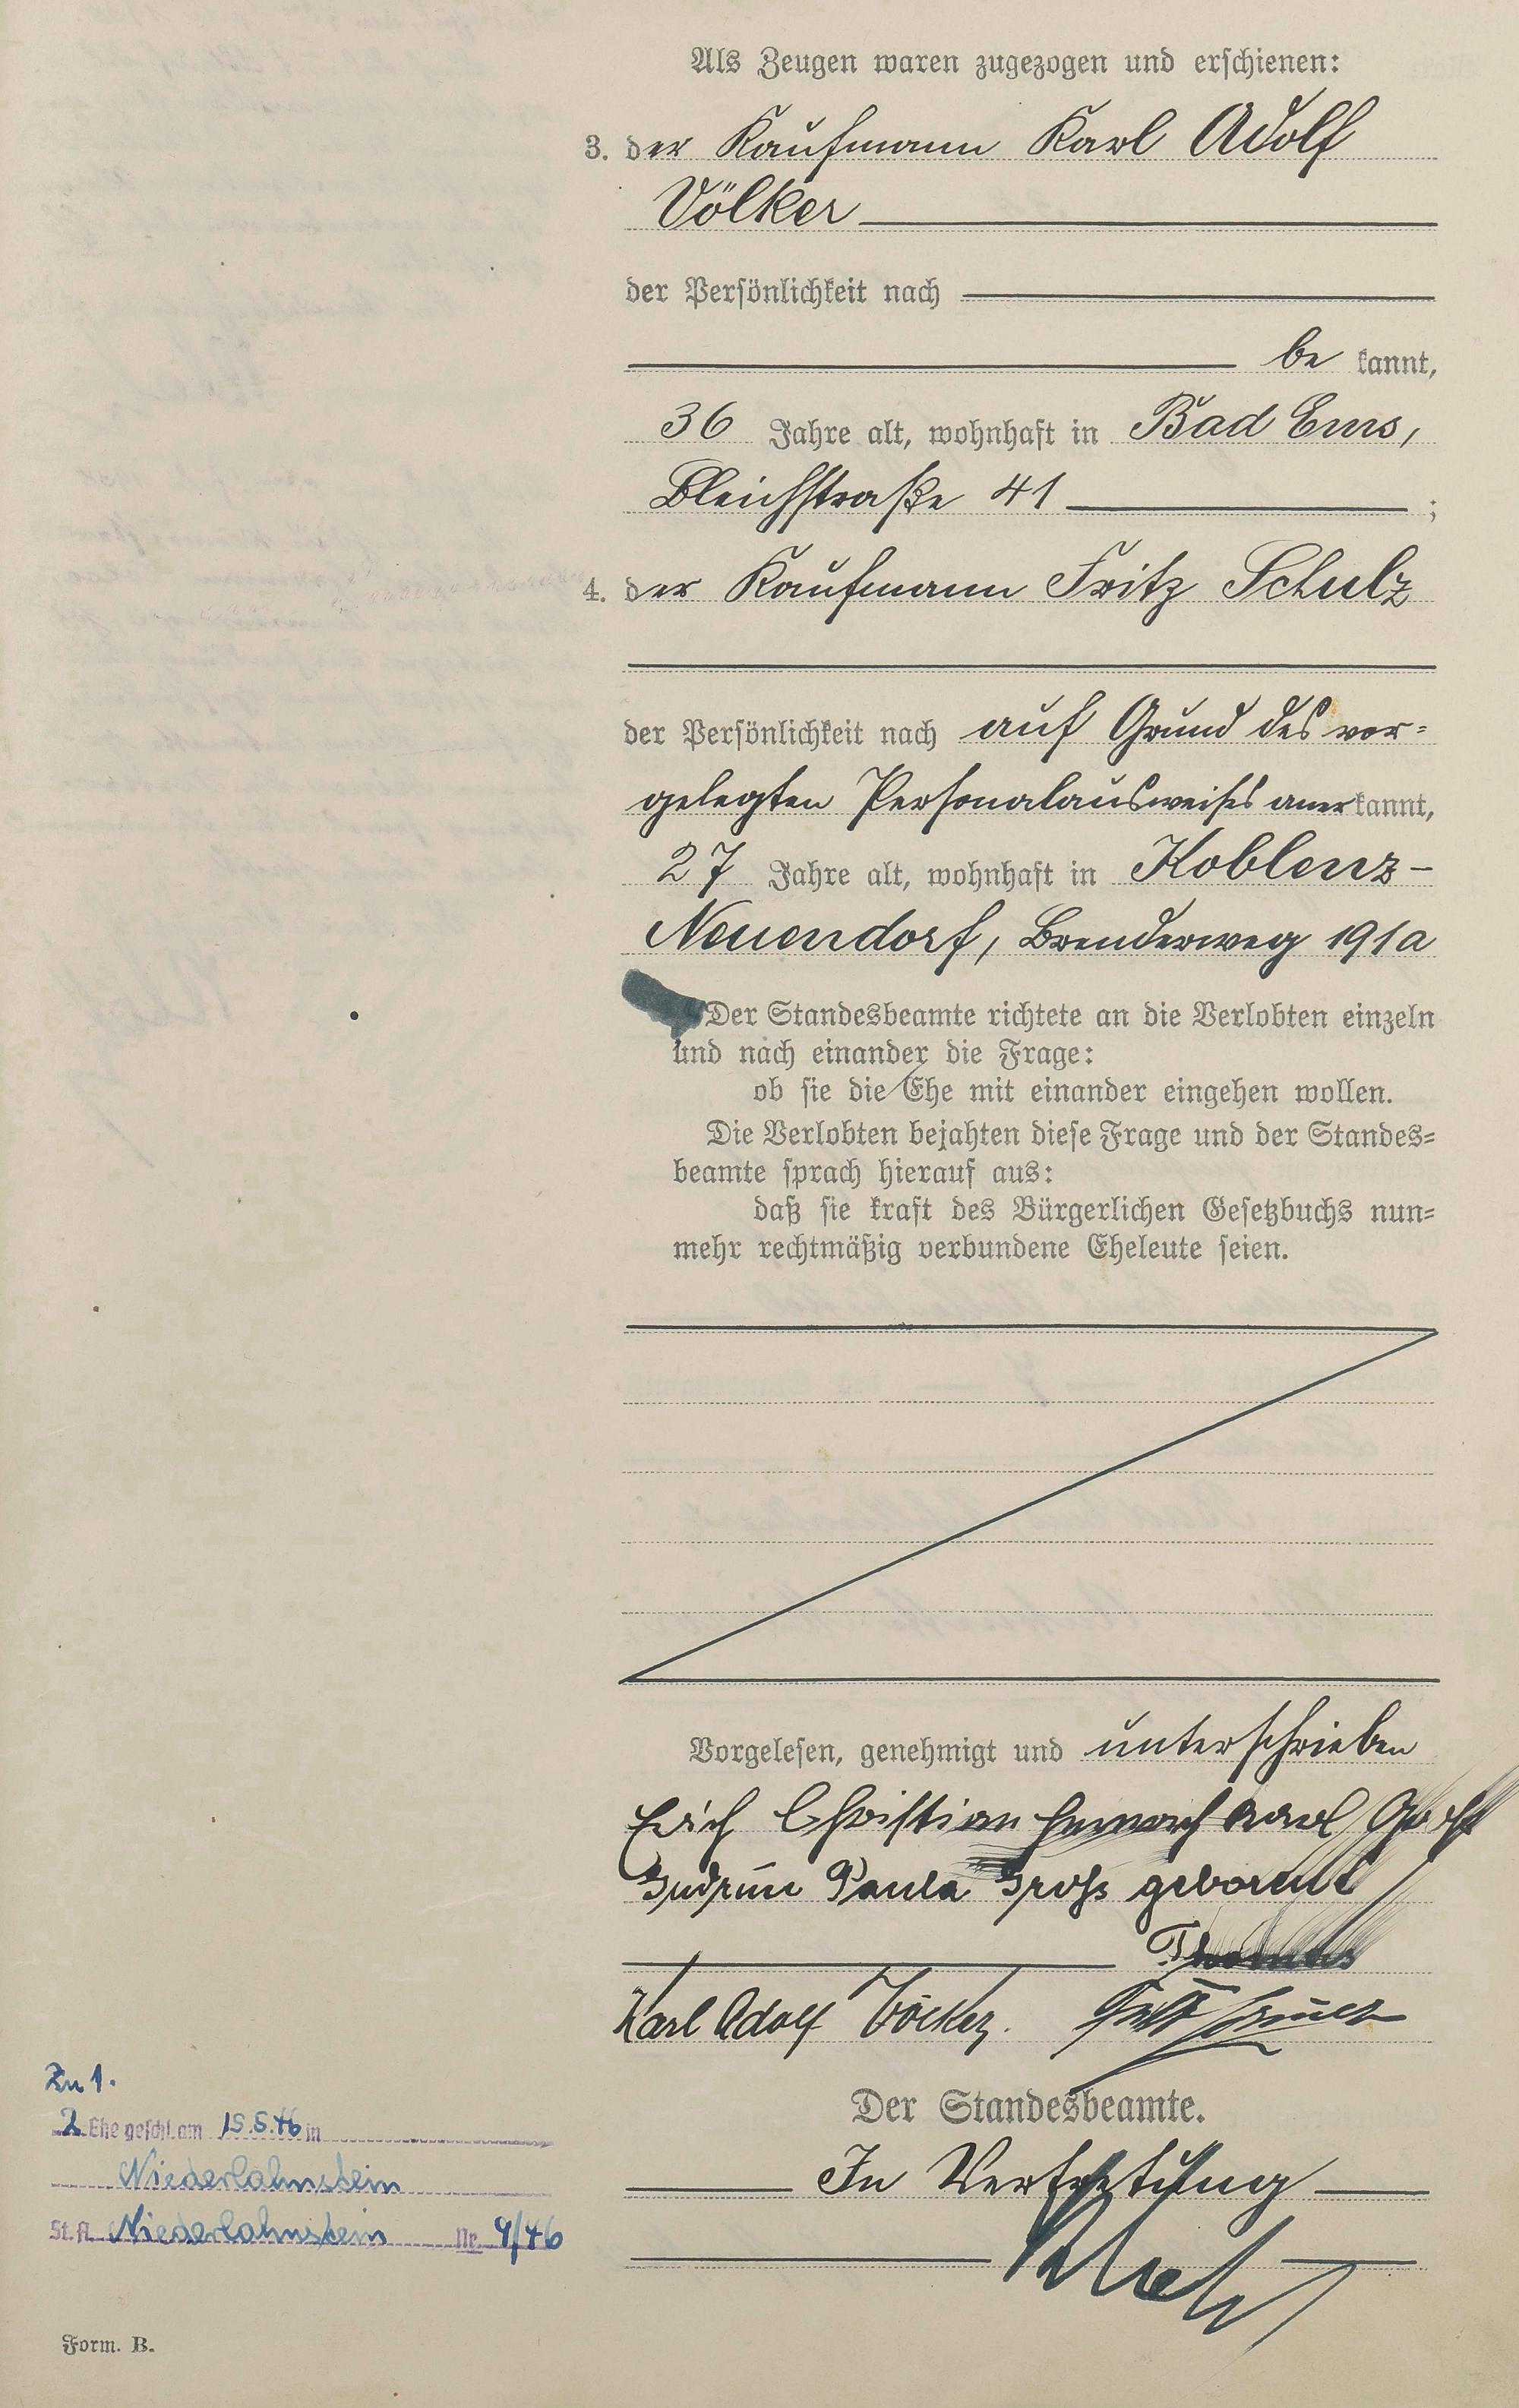 Als Zeugen waren zugezogen und erschienen:
3. der Kaufmann Karl Adolf
Völker
der Persönlichkeit nach
be kannt,
36 Jahre alt, wohnhaft in Bad Ems,
Bleichstraße 41 ;
4. der Kaufmann Fritz Schulz
der Persönlichkeit nach auf Grund des vor=
gelegten Personalausweises anerkannt,
27 Jahre alt, wohnhaft in Koblenz-
Neuendorf, Brenderweg 191a
Der Standesbeamte richtete an die Verlobten einzeln
und nach einander die Frage:
ob sie die Ehe mit einander eingehen wollen.
Die Verlobten bejahten diese Frage und der Standes=
beamte sprach hierauf aus:
daß sie kraft des Bürgerlichen Gesetzbuchs nun=
mehr rechtmäßig verbundene Eheleute seien.
Vorgelesen, genehmigt und unterschrieben
Erich Christian Heinrich Karl Groß
Gudrun Paula Groß geborene
Thomas
Karl Adolf Völker. Fritz Schulz
Der Standesbeamte.
In Vertretung
Zu 1.
2. Ehe geschl. am 15.5.46 in
Niederlahnstein
St. A. Niederlahnstein Nr. 9/46
Form. B.